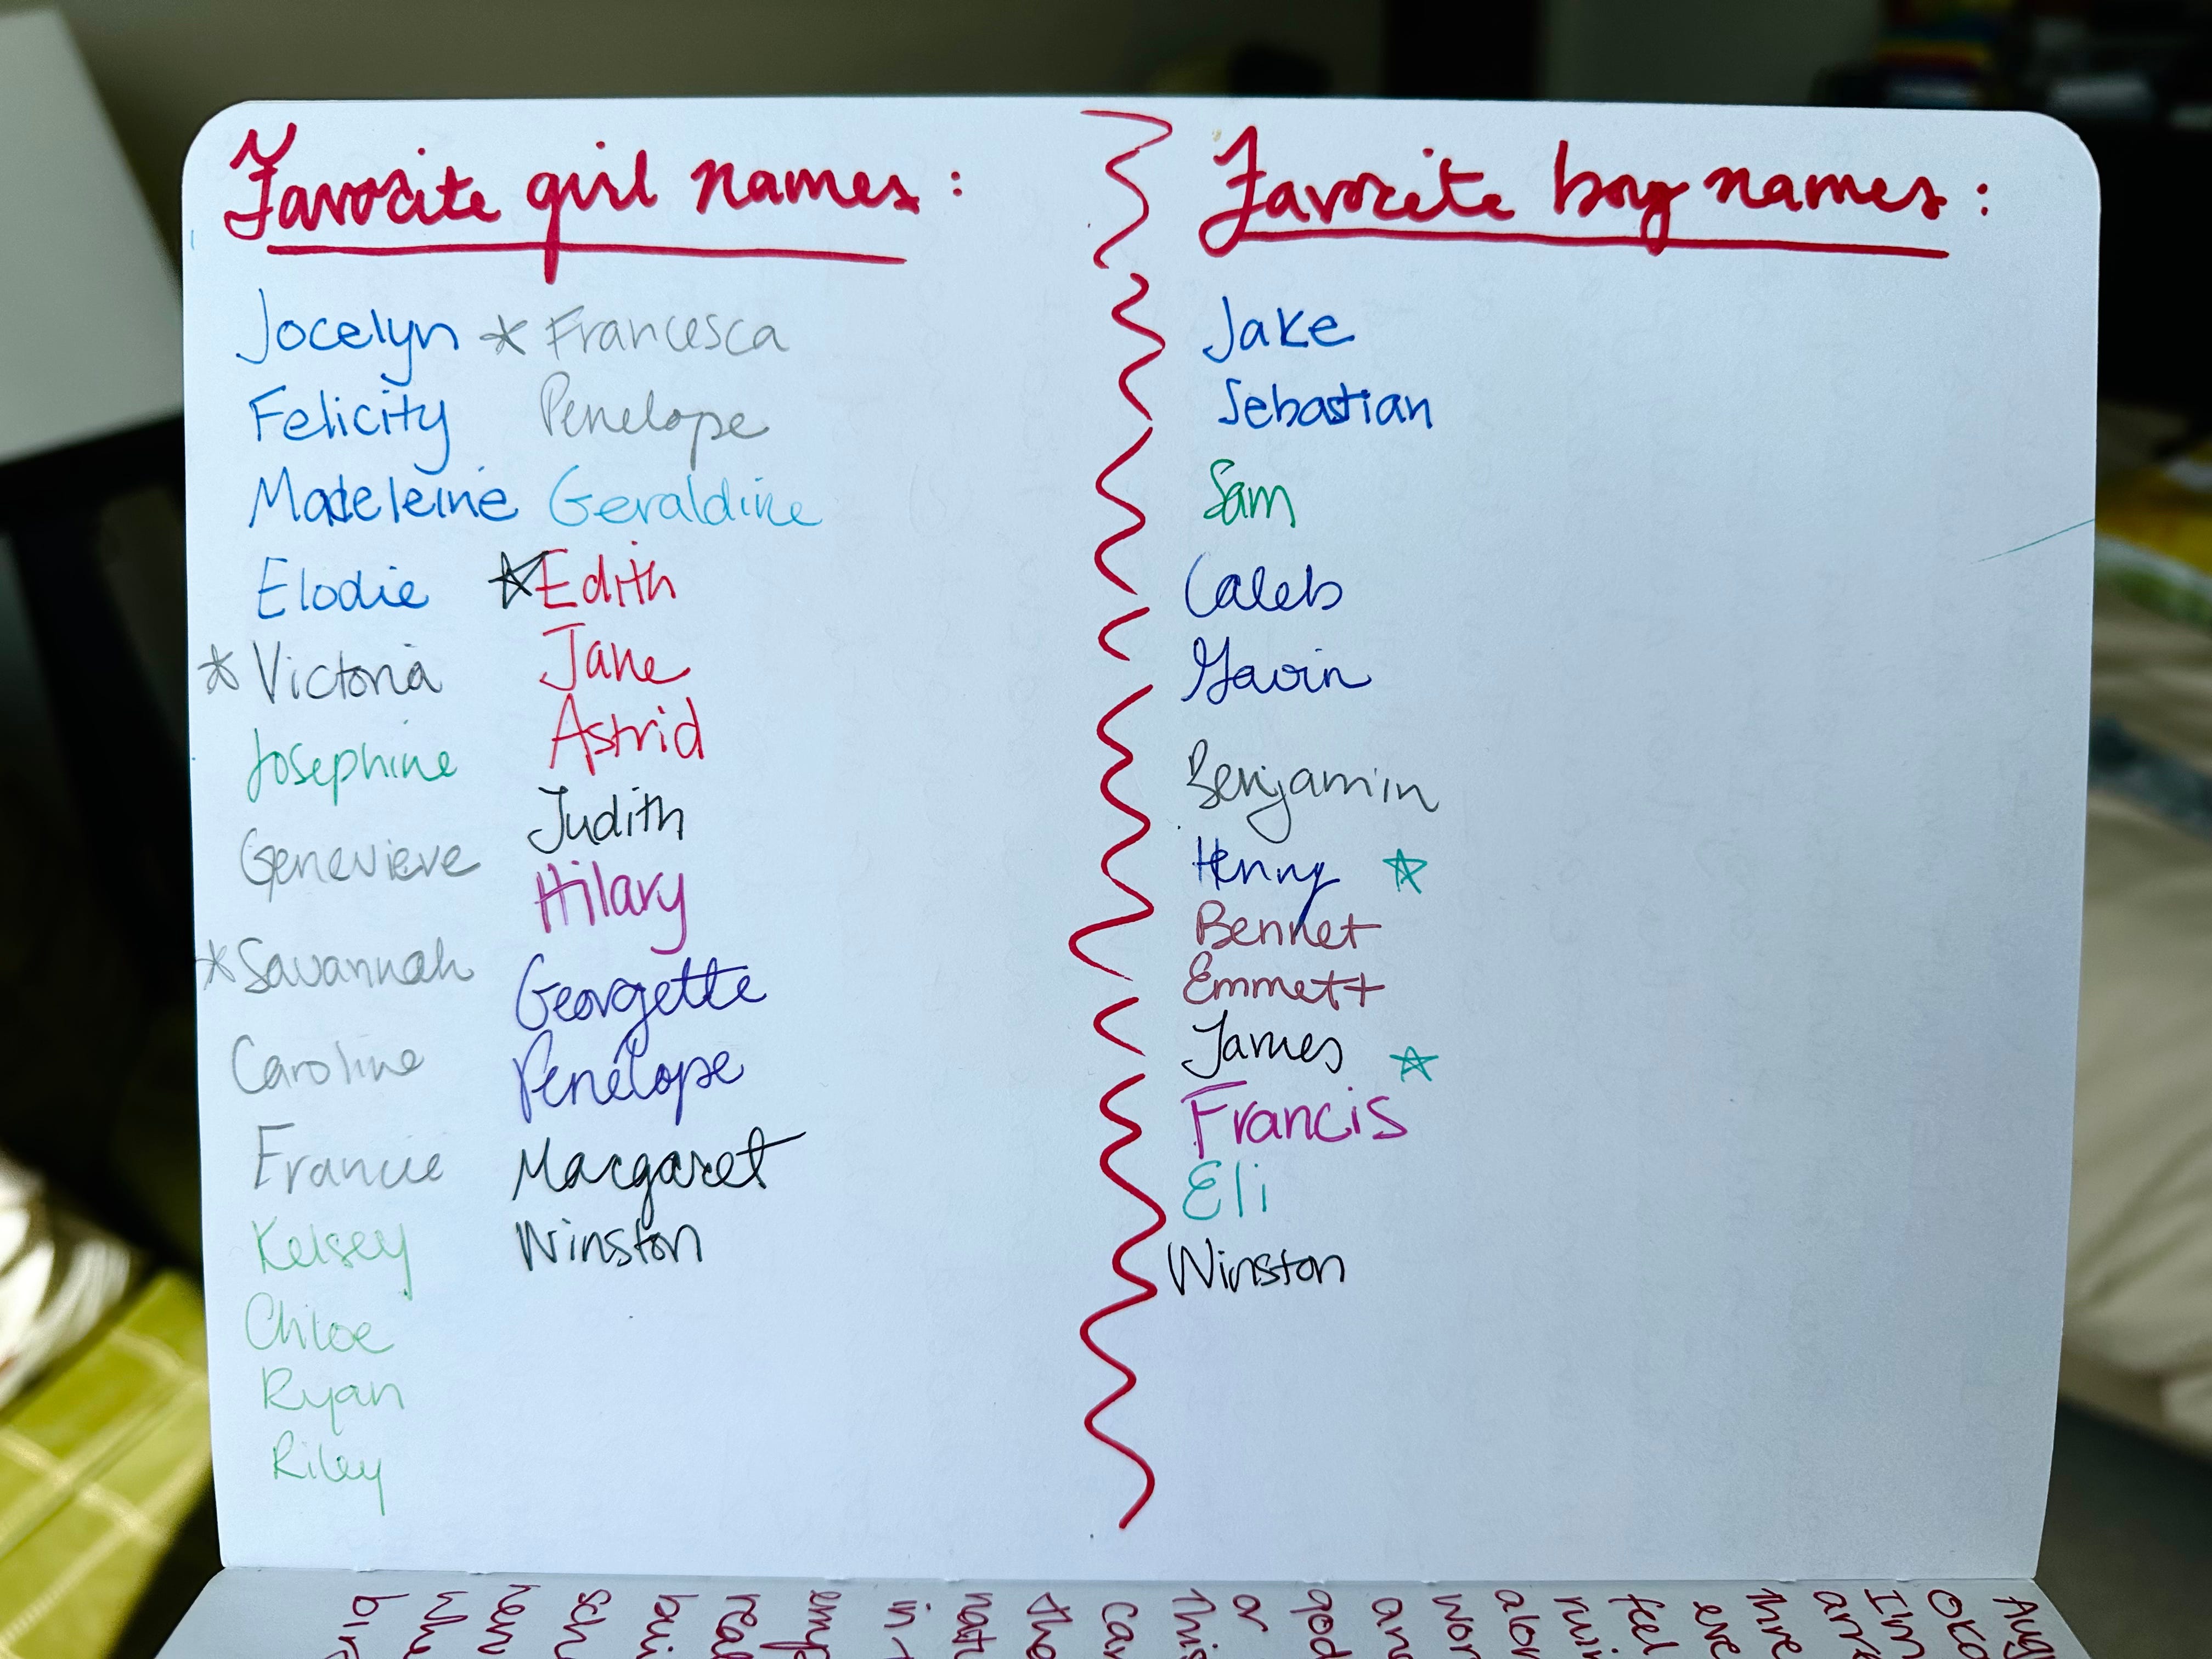 Favorite girl names:
Jocelyn
Felicity
Madeleine
Elodie
* Victoria
Josephine
Genevieve
* Savannah
Caroline
Francie
Kelsey
Chloe
Ryan
Riley
* Francesca
Penelope
Geraldine
☆ Edith
Jane
Astrid
Judith
Hilary
Georgette
Penelope
Margaret
Winston
Favorite boy names:
Jake
Sebastian
Sam
Caleb
Gavin
Benjamin
Henry ☆
Bennet
Emmett
James ☆
Francis
Eli
Winston